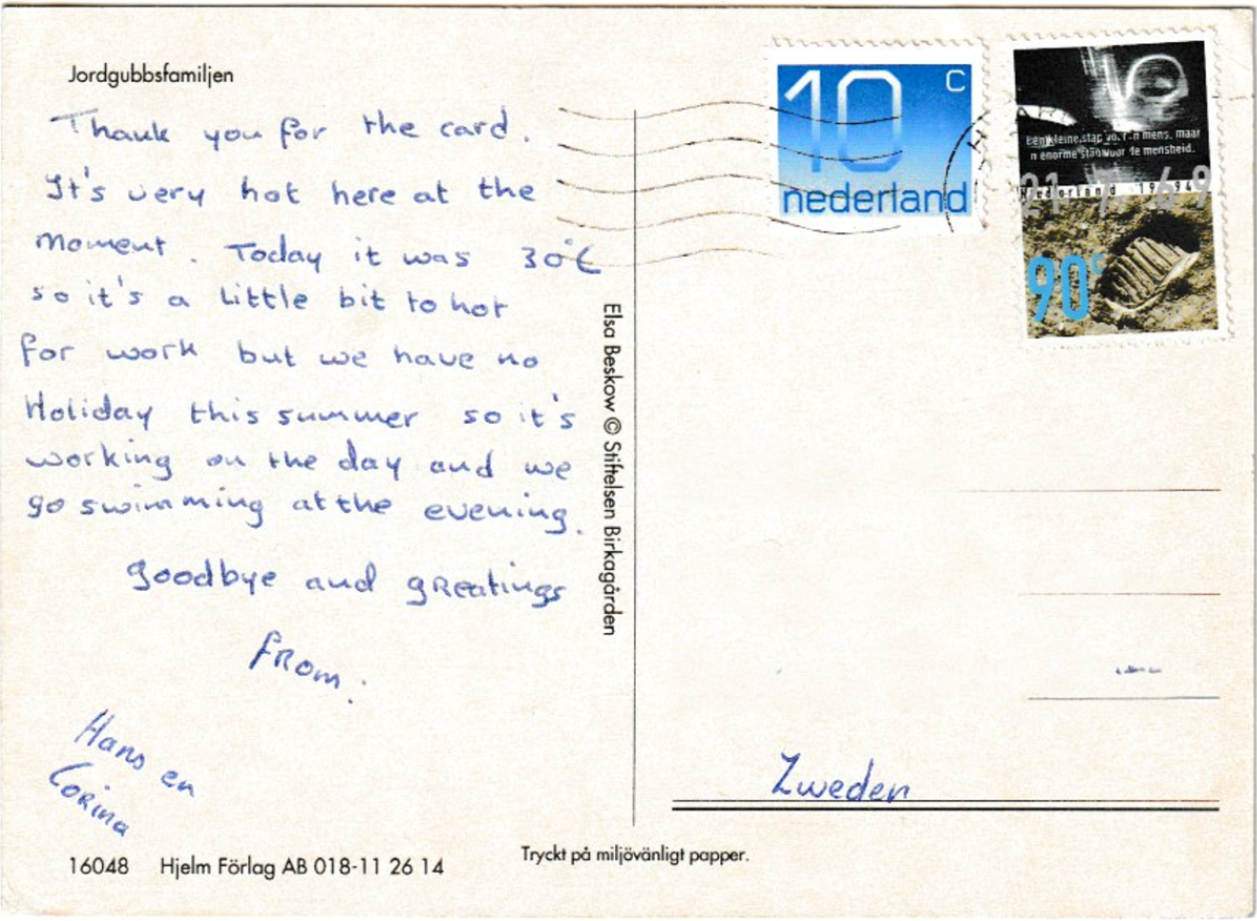 Jordgubbsfamiljen
Thank you for the card.
It's very hot here at the
moment. Today it was 30°C
so it's a little bit to hot
for work but we have no
Holiday this summer so it's
working on the day and we
go swimming at the evening.
Goodbye and greatings
from:
Hans en
Corina
16048 Hjelm Förlag AB 018-11 26 14
Elsa Beskow © Stiftelsen Birkagården
Tryckt på miljövänligt papper.
10 c
nederland
een kleine stap voor 'n mens, maar
'n enorme stap voor de mensheid.
Nederland 1994
21 7 69
90c
Zweden